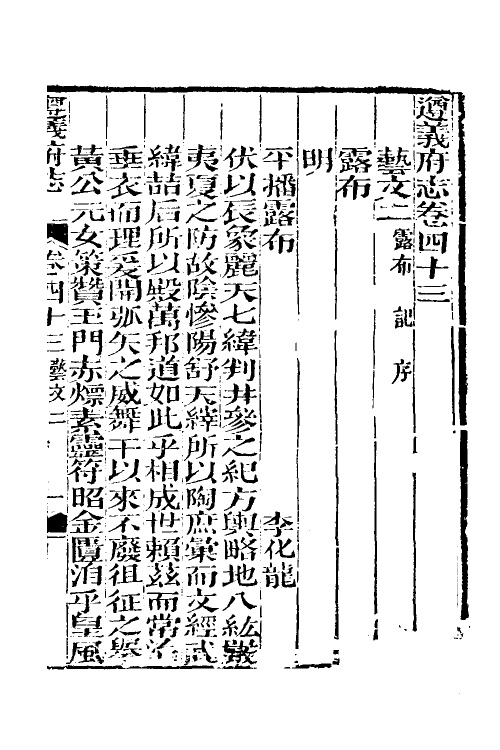 遵義府志卷四十三
藝文二 露布 記 序
露布
明
平播露布 李化龍
伏以辰象麗天七緯判井參之紀方輿略地八紘嚴
夷夏之防故陰慘陽舒天繹所以陶庶彙而文經武
緯喆后所以毆萬邦道如此乎相成世賴茲而常治
垂衣而理爰開弧矢之威舞干以來不廢徂征之舉
黃公元女策贊玉門赤熛素靈符昭金匱洎乎皇風
遵義府志 卷四十三 藝文二 一